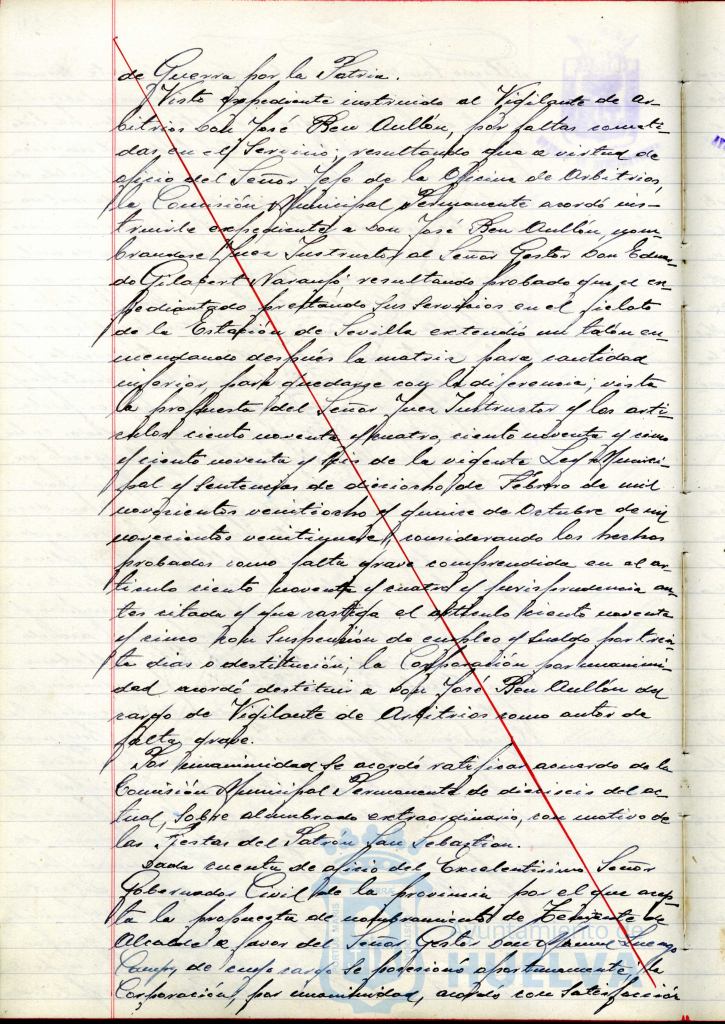 de Guerra por la Patria.
Visto expediente instruido al Vigilante de ar-
bitrios Don José Ben Aullón, por faltas cometi-
das en el Servicio; resultando que a virtud de
oficio del Señor Jefe de la Oficina de Arbitrios,
la Comisión Municipal Permanente acordó ins-
truirle expediente a Don José Ben Aullón, nom-
brandose Juez Instructor al Señor Gestor Don Eduar-
do Gilabert Naranjo; resultando probado que el ex-
pedientado prestando sus servicios en el fielato
de la Estación de Sevilla extendió un talón en-
mendando después la matriz para cantidad
inferior, para quedarse con la diferencia; vista
la propuesta del Señor Juez Instructor y los arti-
culos ciento noventa y cuatro, ciento noventa y cinco
y ciento noventa y seis de la vigente Ley Munici-
pal y Sentencias de dieciocho de Febrero de mil
novecientos veintiocho y quince de Octubre de mil
novecientos veintinueve, considerando los hechos
probados como falta grave comprendida en el ar-
ticulo ciento noventa y cuatro y jurisprudencia an-
tes citada y que castiga el articulo ciento noventa
y cinco con Suspensión de empleo y Sueldo por trein-
ta dias o destitución; la Corporación por unanimi-
dad acordó destituir a Don José Ben Aullón del
cargo de Vigilante de Arbitrios como autor de
falta grave.
Por unanimidad se acordó ratificar acuerdo de la
Comisión Municipal Permanente de dieciseis del ac-
tual, sobre alumbrado extraordinario, con motivo de
las Fiestas del Patrón San Sebastian.
Dada cuenta de oficio del Excelentisimo Señor
Gobernador Civil de la provincia por el que acep-
ta la propuesta de nombramiento de Teniente de
Alcalde a favor del Señor Gestor Don Manuel Luengo
de cuyo cargo se posesionó oportunamente; la
Corporación, por unanimidad, acordó con satisfacción
Ayuntamiento de
HUELVA